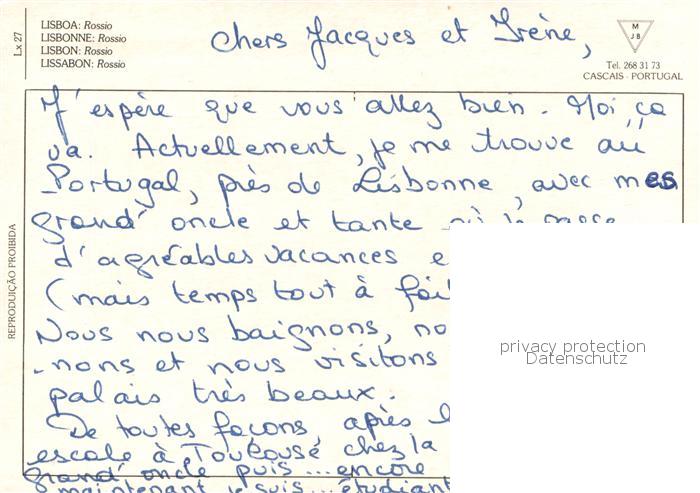 LISBOA: Rossio
LISBONNE: Rossio
LISBON: Rossio
LISSABON: Rossio
Lx 27
M
JB
Tel. 268 31 73
CASCAIS - PORTUGAL
REPRODUIÇÃO PROIBIDA
Chers Jacques et Irène,
J'espère que vous allez bien. Moi, ça
va. Actuellement, je me trouve au
Portugal, près de Lisbonne, avec mes
grand' oncle et tante où je passe
d'agréables vacances
(mais temps tout à
Nous nous baignons,
-nons et nous visitons
palais très beaux.
De toutes façons, après
escale à Toulouse chez la
grand' oncle puis... encore
maintenant je suis... étudiant
privacy protection
Datenschutz